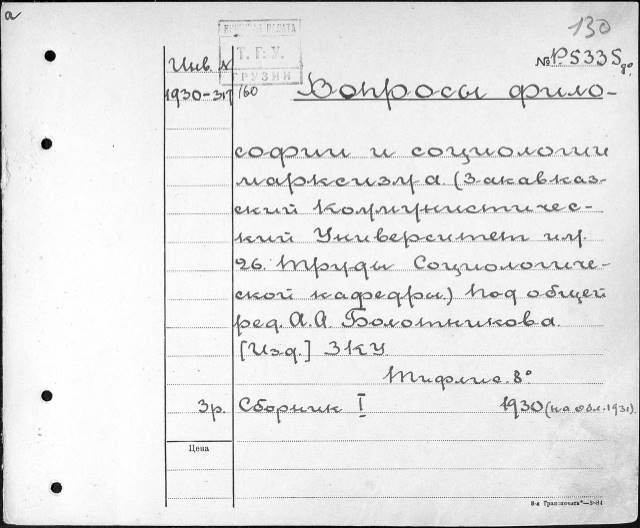 a
КНИЖНАЯ ПАЛАТА
Т. Г. У.
ГРУЗИИ
130
№ P5335
8°
Инв. №
1930-317/60
Вопросы фило-
софии и социологии
марксизма. (Закавказ-
ский Коммунистичес-
кий Университет им.
26. Труды Социологиче-
ской кафедры.) Под общей
ред. А.А. Болотникова.
[Изд.] ЗКУ
Тифлис. 8°
3р. Сборник I 1930 (на обл. 1931).
Цена